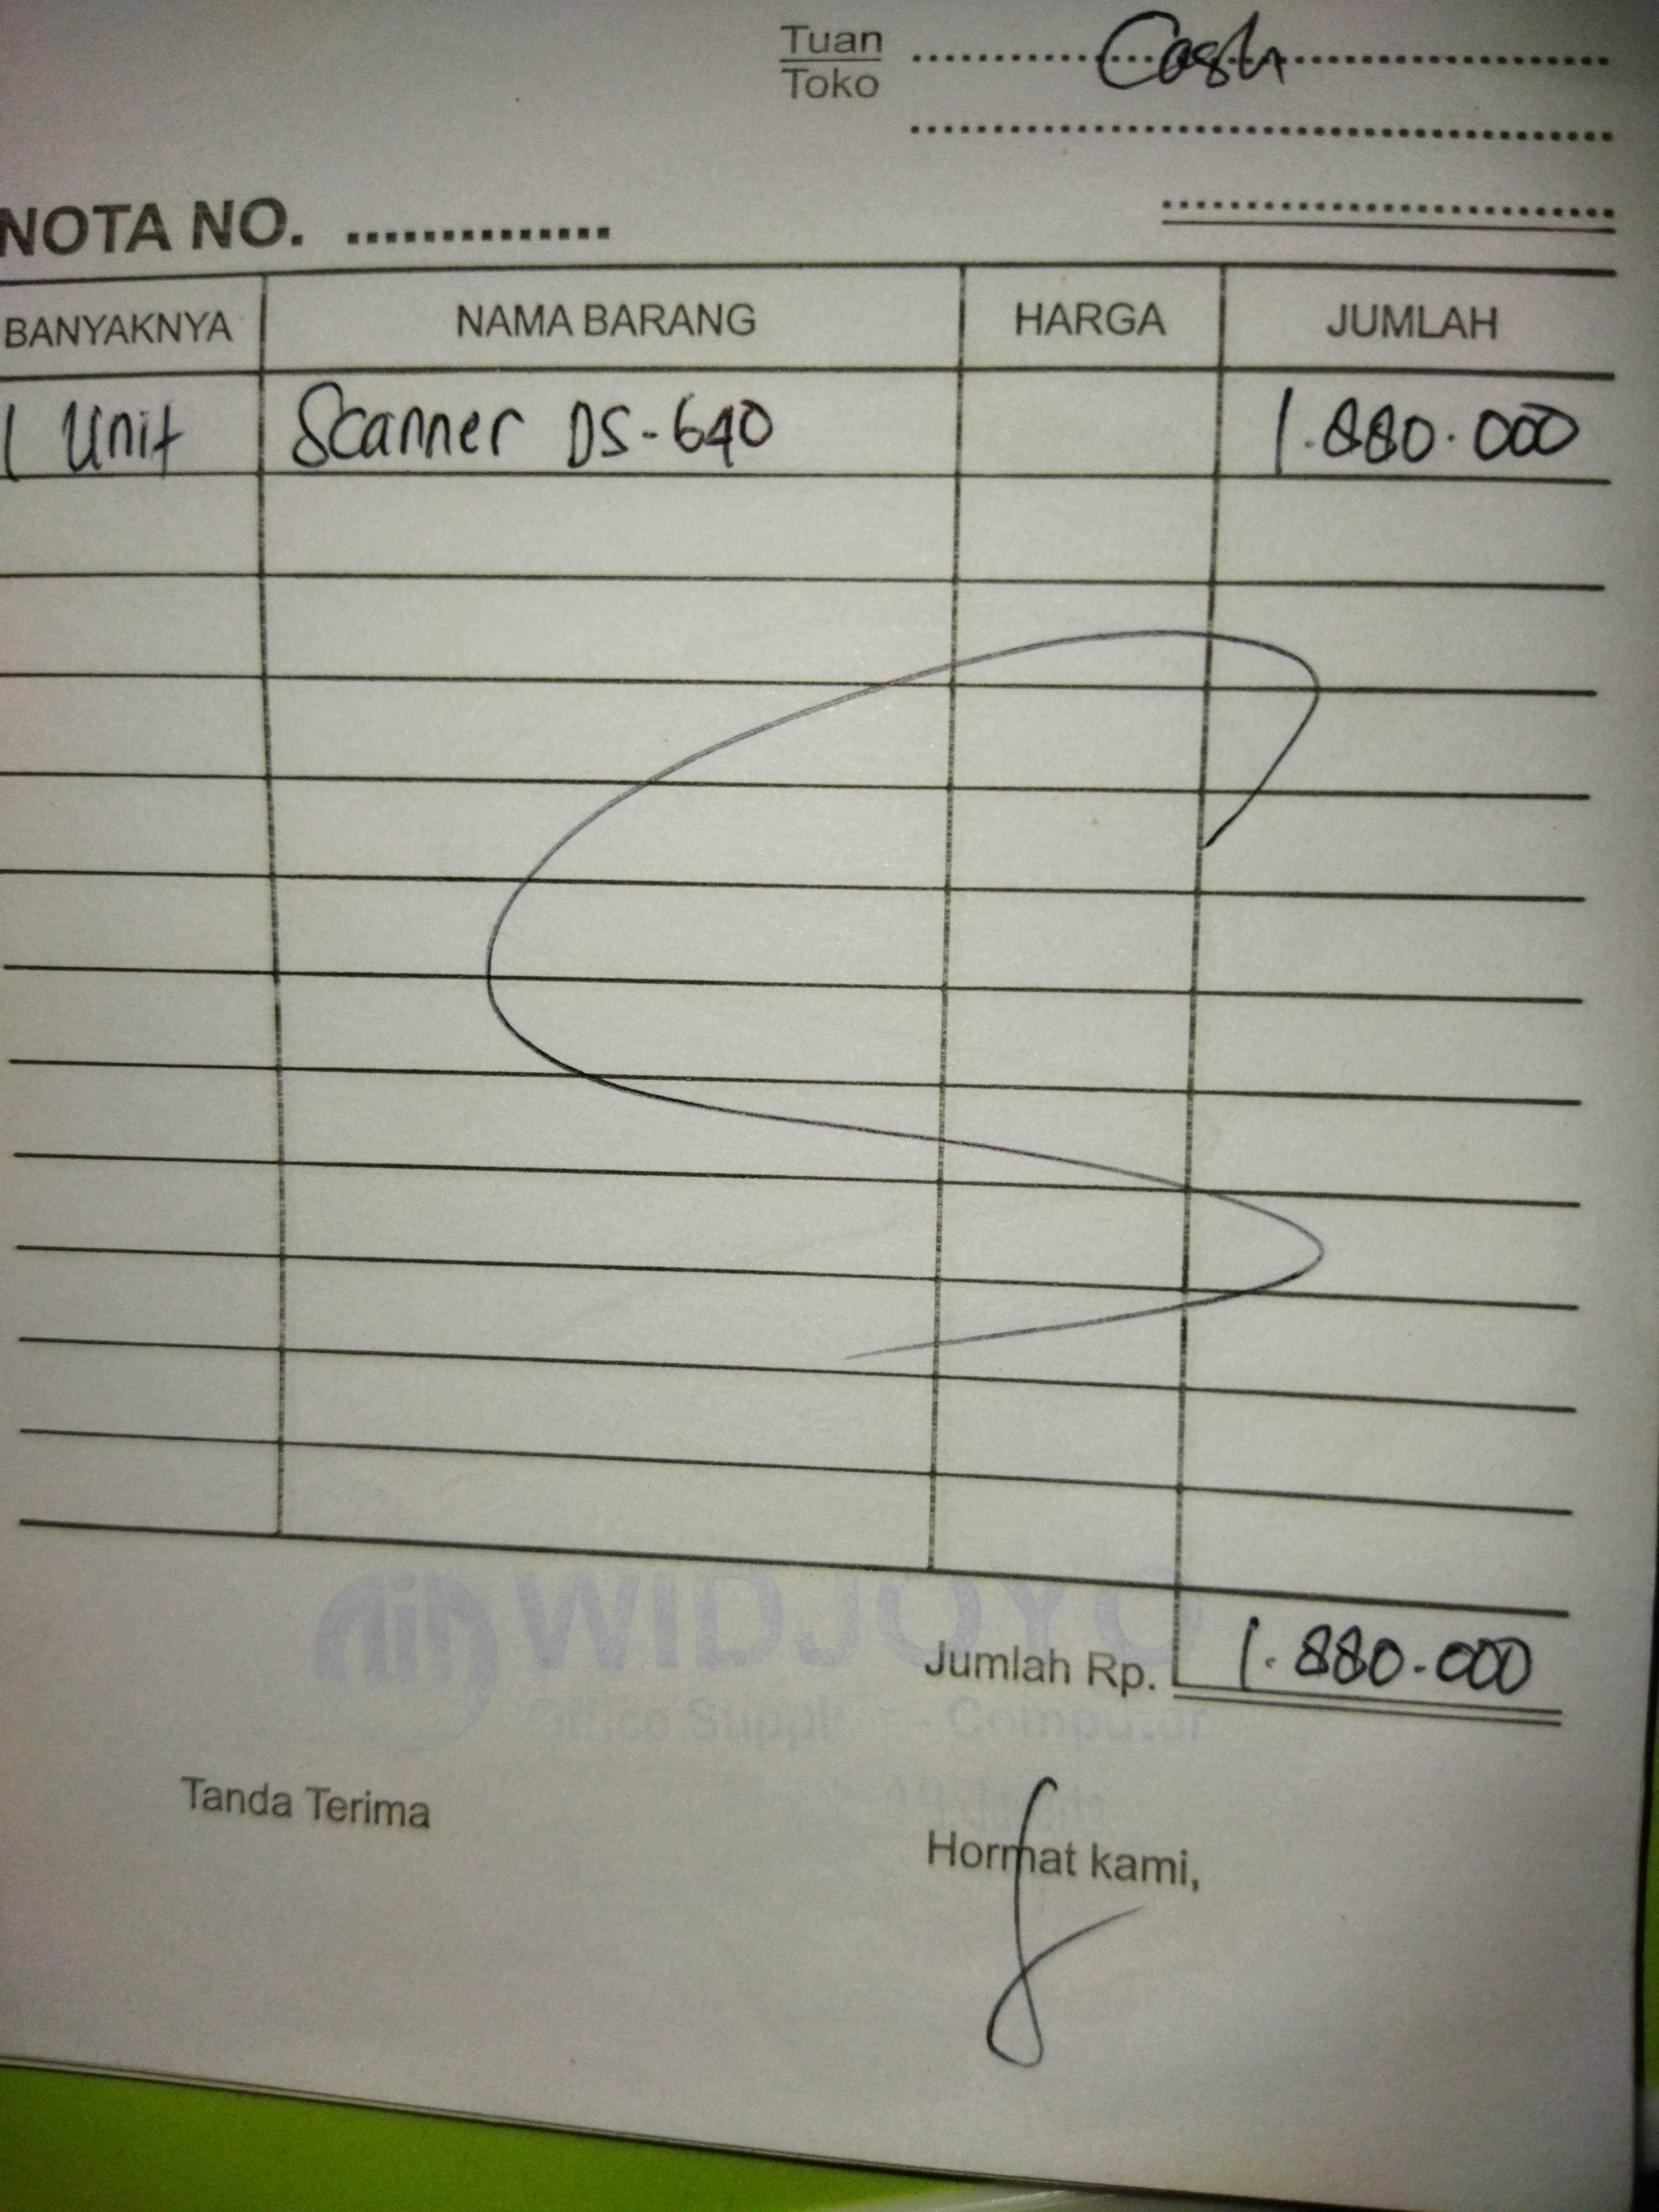 Tuan Cash
Toko
NOTA NO. ..............
BANYAKNYA NAMA BARANG HARGA JUMLAH
1 Unit Scanner DS-640 1.880.000
WIDJOYO
Jumlah Rp. 1.880.000
Office Supplier - Computer
Tanda Terima
Hormat kami,